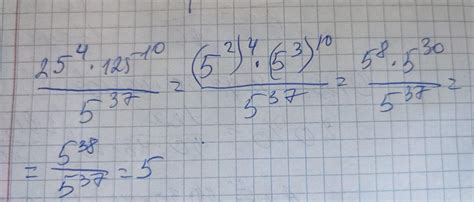 25⁴ · 125¹⁰ / 5³⁷ = (5²)⁴ · (5³)¹⁰ / 5³⁷ = 5⁸ · 5³⁰ / 5³⁷ =
= 5³⁸ / 5³⁷ = 5